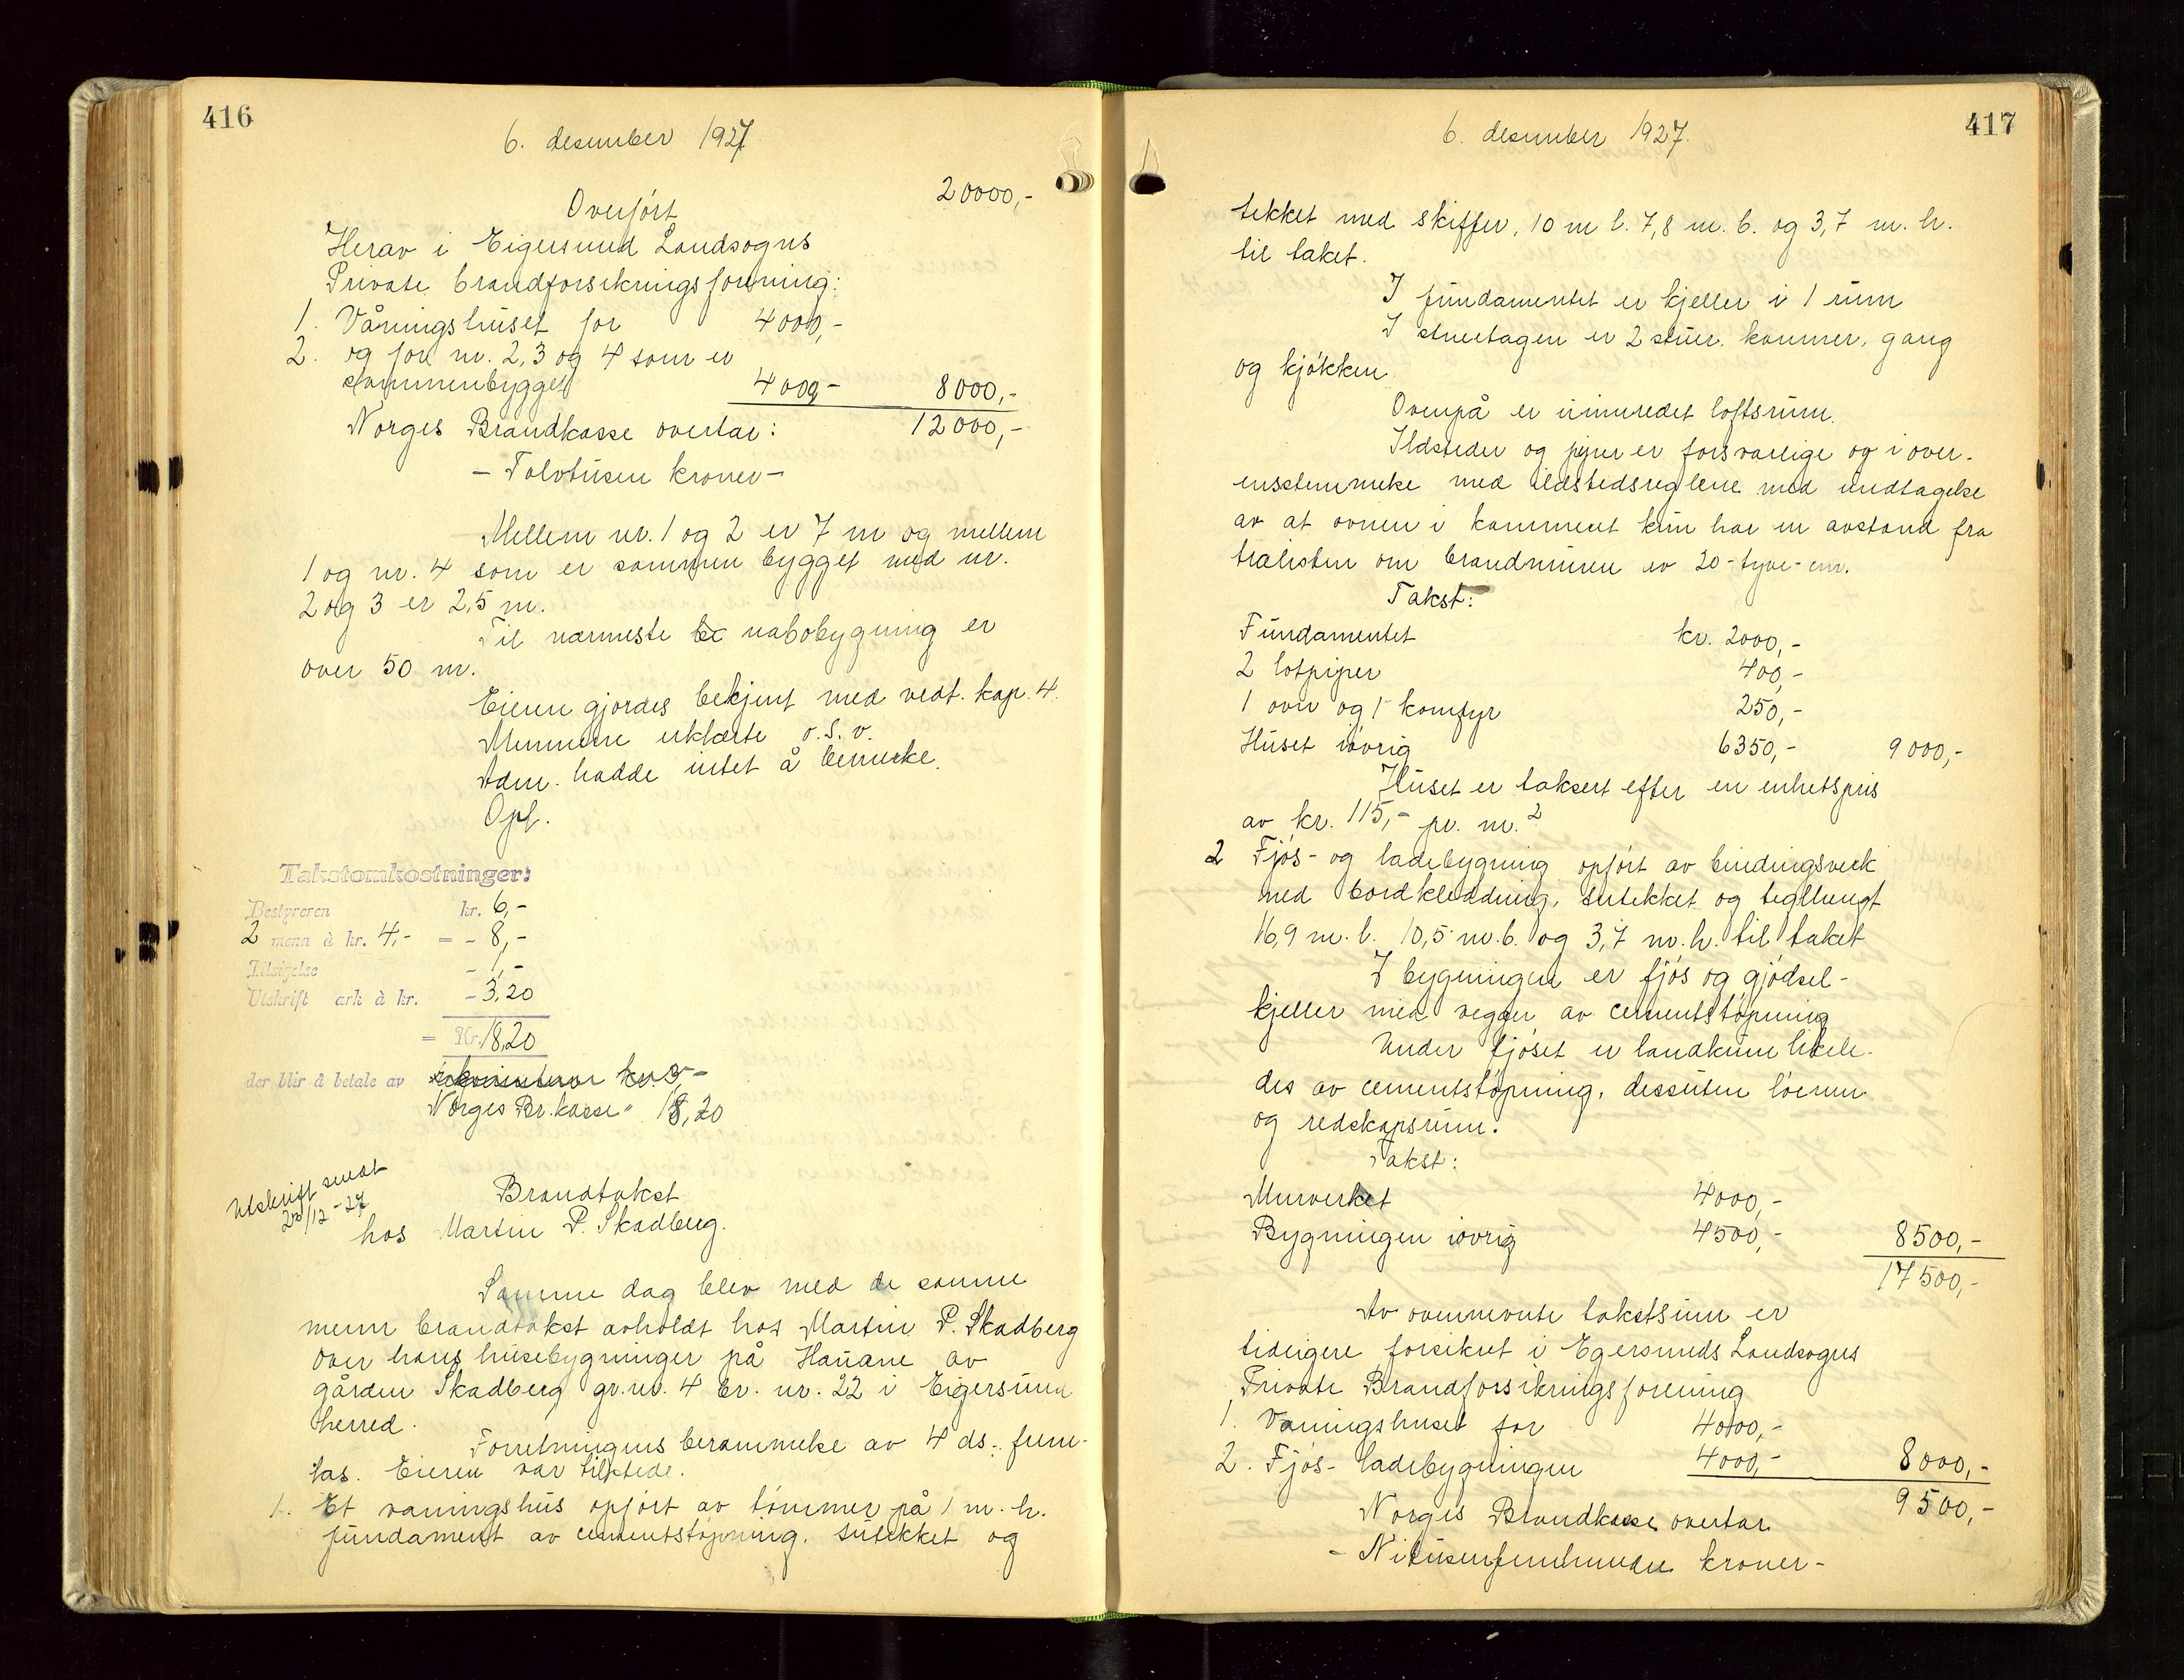 416
6. desember 1927.
Overført 20000,-
Herav i Eigersund Landsogns
Private brandforsikringsforening:
1. Våningshuset for 4000,-
2. og for nr. 2, 3 og 4 som er
sammenbygget 4000,- 8000,-
Norges Brandkasse overtar: 12000,-
- Tolvtusen kroner -
Mellem nr. 1 og 2 er 7 m og mellem
1 og nr. 4 som er sammen bygget med nr.
2 og 3 er 2,5 m.
Til nærmeste nabobygning er
over 50 m.
Eieren gjordes bekjent med vedt. kap. 4.
Mennene erklærte o.s.v.
Adm. hadde intet å bemerke.
Opl.
Takstomkostninger:
Bestyreren kr. 6,-
2 menn à kr. 4,- = - 8,-
Tilsigelse - 1,-
Utskrift ark à kr. - 3,20
= Kr. 18,20
der blir å betale av rekvirenten kr. 3,-
Norges Br.kasse " 18,20
Utskrift sendt
22/12-27
Brandtakst
hos Martin P. Skadberg.
Samme dag blev med de samme
menn brandtakst avholdt hos Martin P. Skadberg
over hans husebygninger på Hauane av
gården Skadberg gr.nr. 4 br. nr. 22 i Eigersund
herred.
Forretningens berammelse av 4 ds. frem-
las. Eieren var tilstede.
1. Et våningshus opført av tømmer på 1 m. h.
fundament av cementstøpning, sutekket og
417
6. desember 1927.
tekket med skiffer, 10 m l. 7,8 m. b. og 3,7 m. h.
til taket.
I fundamentet er kjeller i 1 rum
I stueetagen er 2 stuer, kammer, gang
og kjøkken.
Ovenpå er uinnredet loftsrum.
Ildsteder og piper er forsvarlige og i over-
ensstemmelse med ildstedsreglene med undtagelse
av at ovnen i kammeret kun har en avstand fra
trælisten om brandmuren er 20 - tyve - cm.
Takst:
Fundamentet kr. 2000,-
2 lotpiper 400,-
1 ovn og 1 komfyr 250,-
Huset iøvrig 6350,- 9000,-
Huset er taksert efter en enhetspris
av kr. 115,- pr. m.²
2 Fjøs- og ladebygning opført av bindingsverk
med bordklædning, sutekket og tegltengt
16,9 m. l. 10,5 m. b. og 3,7 m. h. til taket
I bygningen er fjøs og gjødsel-
kjeller med vegger av cementstøpning
Under fjøset er landkum likele-
des av cementstøpning, dessuten løerum
og redskapsrum.
Takst:
Murverket 4000,-
Bygningen iøvrig 4500,- 8500,-
17500,-
Av ovennevnte takstsum er
tidligere forsikret i Egersunds Landsogns
Private Brandforsikringsforening
1. Våningshuset for 4000,-
2. Fjøs- ladebygningen 4000,- 8000,-
Norges Brandkasse overtar 9500,-
- Nitusenfemhundre kroner -